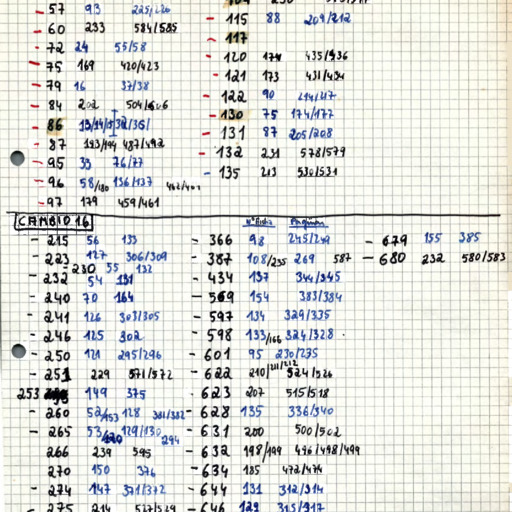 - 57 93
- 60 233 584/585
- 72 24 55/58
- 75 169 420/423
- 79 16 37/38
- 84 202
- 86
- 87 193/194 487/492
- 95 33 76/77
- 96 58/180 136/137
- 97 179 459/461
- 115 88 209/212
- 117
- 120 435/436
- 121 173 431/434
- 122 90
- 130 75 174/177
- 131 87 205/208
- 132 231 578/579
- 135 213 530/531
CAMBIO 16
Nº Ficha Páginas
- 215 56 133
- 223 127 306/309
- 230 55 132
- 232 54 131
- 240 70 164
- 241 126 303/305
- 246 125 302
- 250 121 295/296
- 251 229 571/572
253 149 375
- 260 52/153 128 381/382
- 265 53/120 129/130 294
266 239 595
270 150 376
- 274 147 371/372
- 275 214
- 366 98 245/249
- 387 108/235 269 587
- 434 137 344/345
- 569 154 383/384
- 597 134 329/335
- 598 133/166 324/328
- 601 95 230/235
- 622 210/211/212 524/526
- 623 207 515/518
- 628 135 336/340
- 631 200 500/502
- 632 198/199 496/498/499
- 634 185 472/474
- 644 131 312/314
- 646 129 315/317
- 679 155 385
- 680 232 580/583